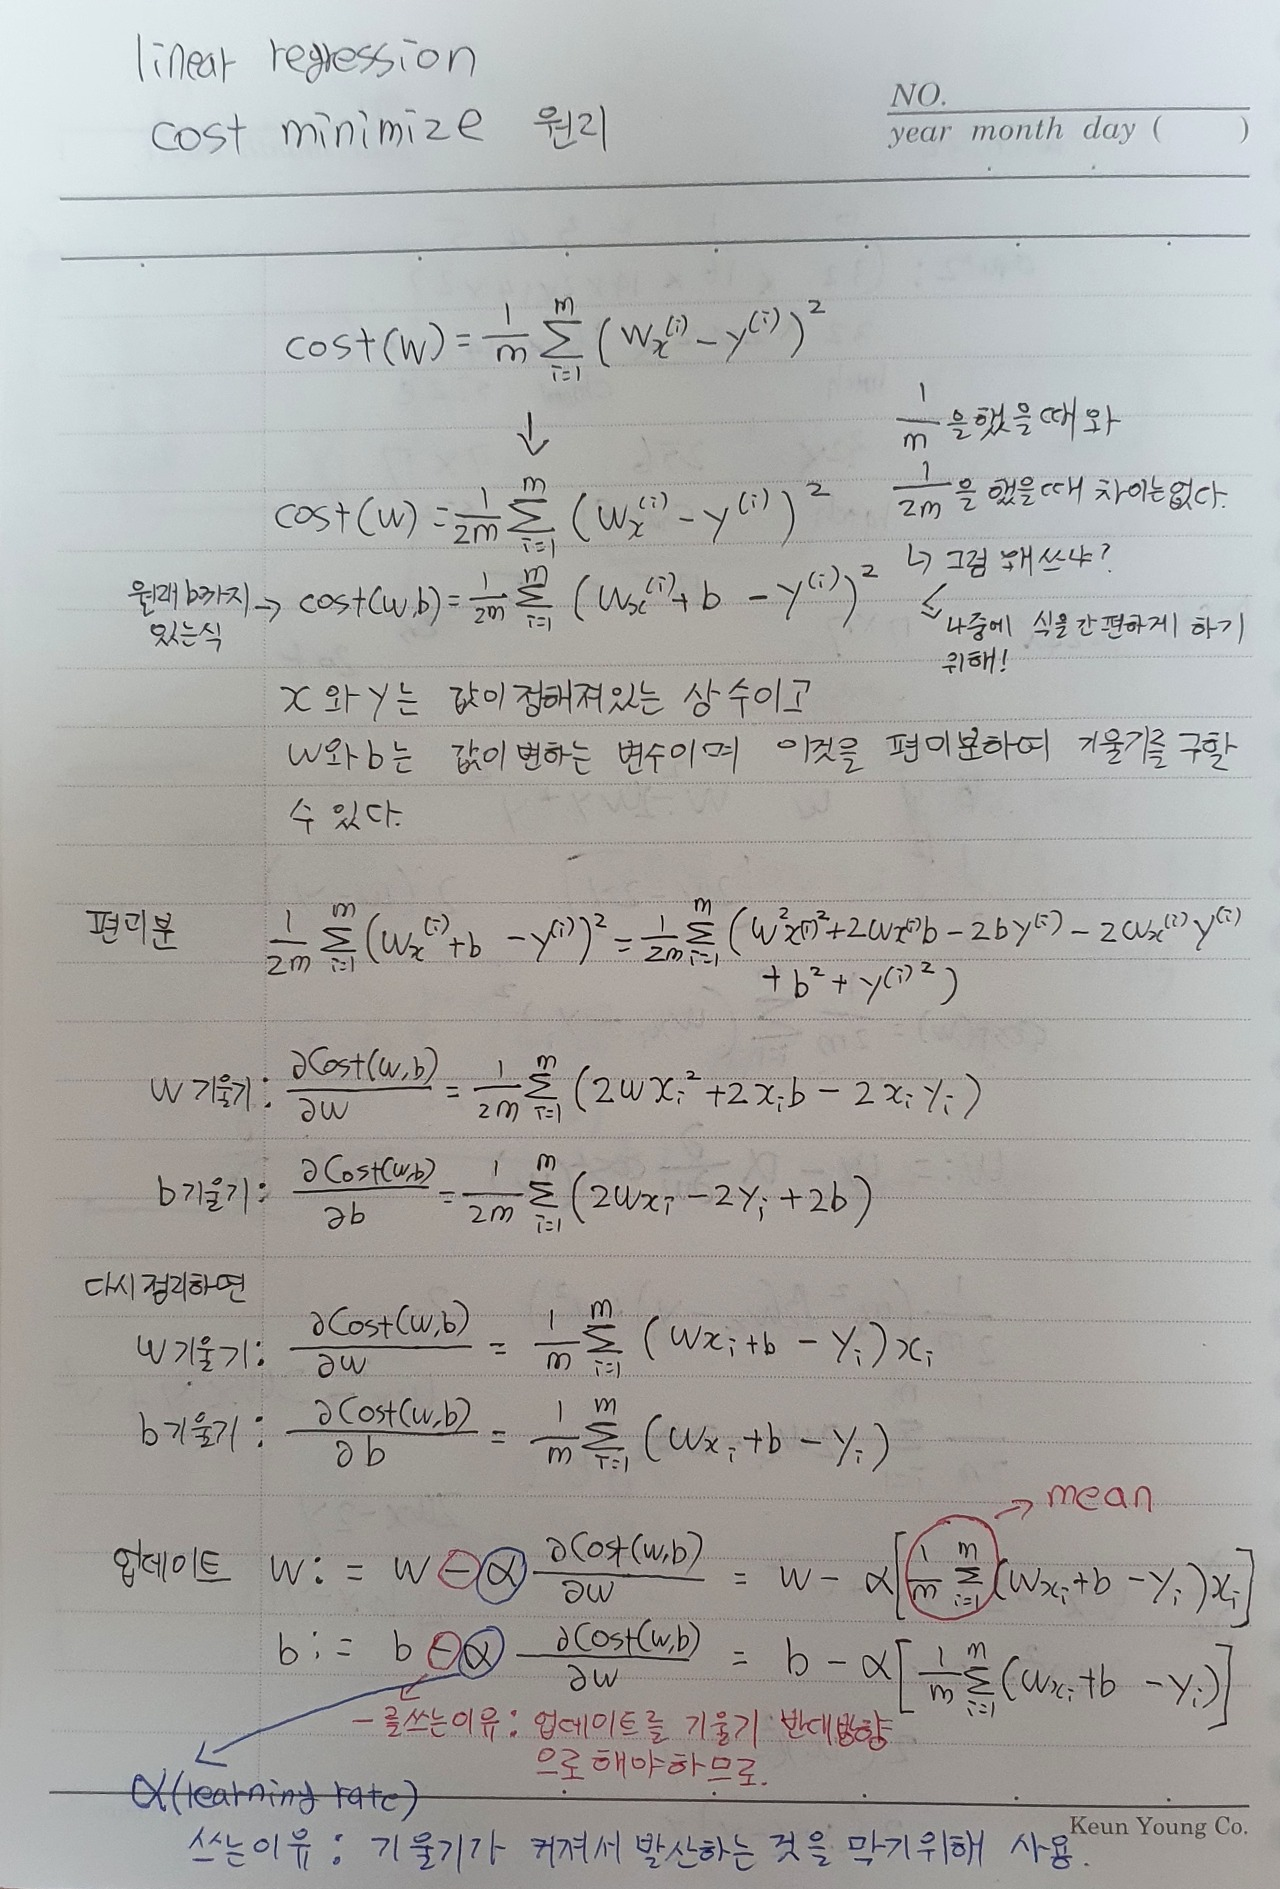 linear regression
cost minimize 원리
NO.
year month day ( )
cost(w) = 1/m ∑_{i=1}^{m} (Wx^(i) - y^(i))^2
↓
1/m 을 했을 때와
1/2m 을 했을 때 차이는 없다.
cost(w) = 1/2m ∑_{i=1}^{m} (Wx^(i) - y^(i))^2
↳ 그럼 왜 쓰냐?
나중에 식을 간편하게 하기
위해!
원래 b까지
있는식 → cost(w,b) = 1/2m ∑_{i=1}^{m} (Wx^(i) + b - y^(i))^2
x와 y는 값이 정해져있는 상수이고
w와 b는 값이 변하는 변수이며 이것을 편미분하여 기울기를 구할
수 있다.
편미분 1/2m ∑_{i=1}^{m} (Wx^(i) + b - y^(i))^2 = 1/2m ∑_{i=1}^{m} (W^2x^(i)^2 + 2Wx^(i)b - 2by^(i) - 2Wx^(i)y^(i)
+ b^2 + y^(i)^2)
W 기울기 : ∂Cost(w,b)/∂w = 1/2m ∑_{i=1}^{m} (2wx_i^2 + 2x_i b - 2x_i y_i)
b 기울기 : ∂Cost(w,b)/∂b = 1/2m ∑_{i=1}^{m} (2wx_i - 2y_i + 2b)
다시 정리하면
W 기울기 : ∂Cost(w,b)/∂w = 1/m ∑_{i=1}^{m} (Wx_i + b - y_i)x_i
b 기울기 : ∂Cost(w,b)/∂b = 1/m ∑_{i=1}^{m} (Wx_i + b - y_i)
→ mean
업데이트 W := W - α ∂Cost(w,b)/∂w = W - α[1/m ∑_{i=1}^{m} (Wx_i + b - y_i)x_i]
b := b - α ∂Cost(w,b)/∂w = b - α[1/m ∑_{i=1}^{m} (Wx_i + b - y_i)]
- 를 쓰는 이유 : 업데이트를 기울기 반대방향
으로 해야하므로.
α(learning rate)
Keun Young Co.
쓰는이유 : 기울기가 커져서 발산하는 것을 막기위해 사용.